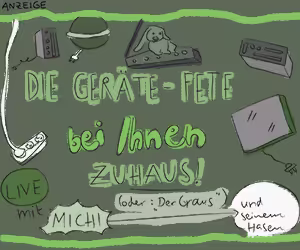 ANZEIGE
DIE GERÄTE-FETE
bei Ihnen
ZUHAUS!
(oder: Der Graus)
LIVE
mit
MICHI
und
seinem
Hasen